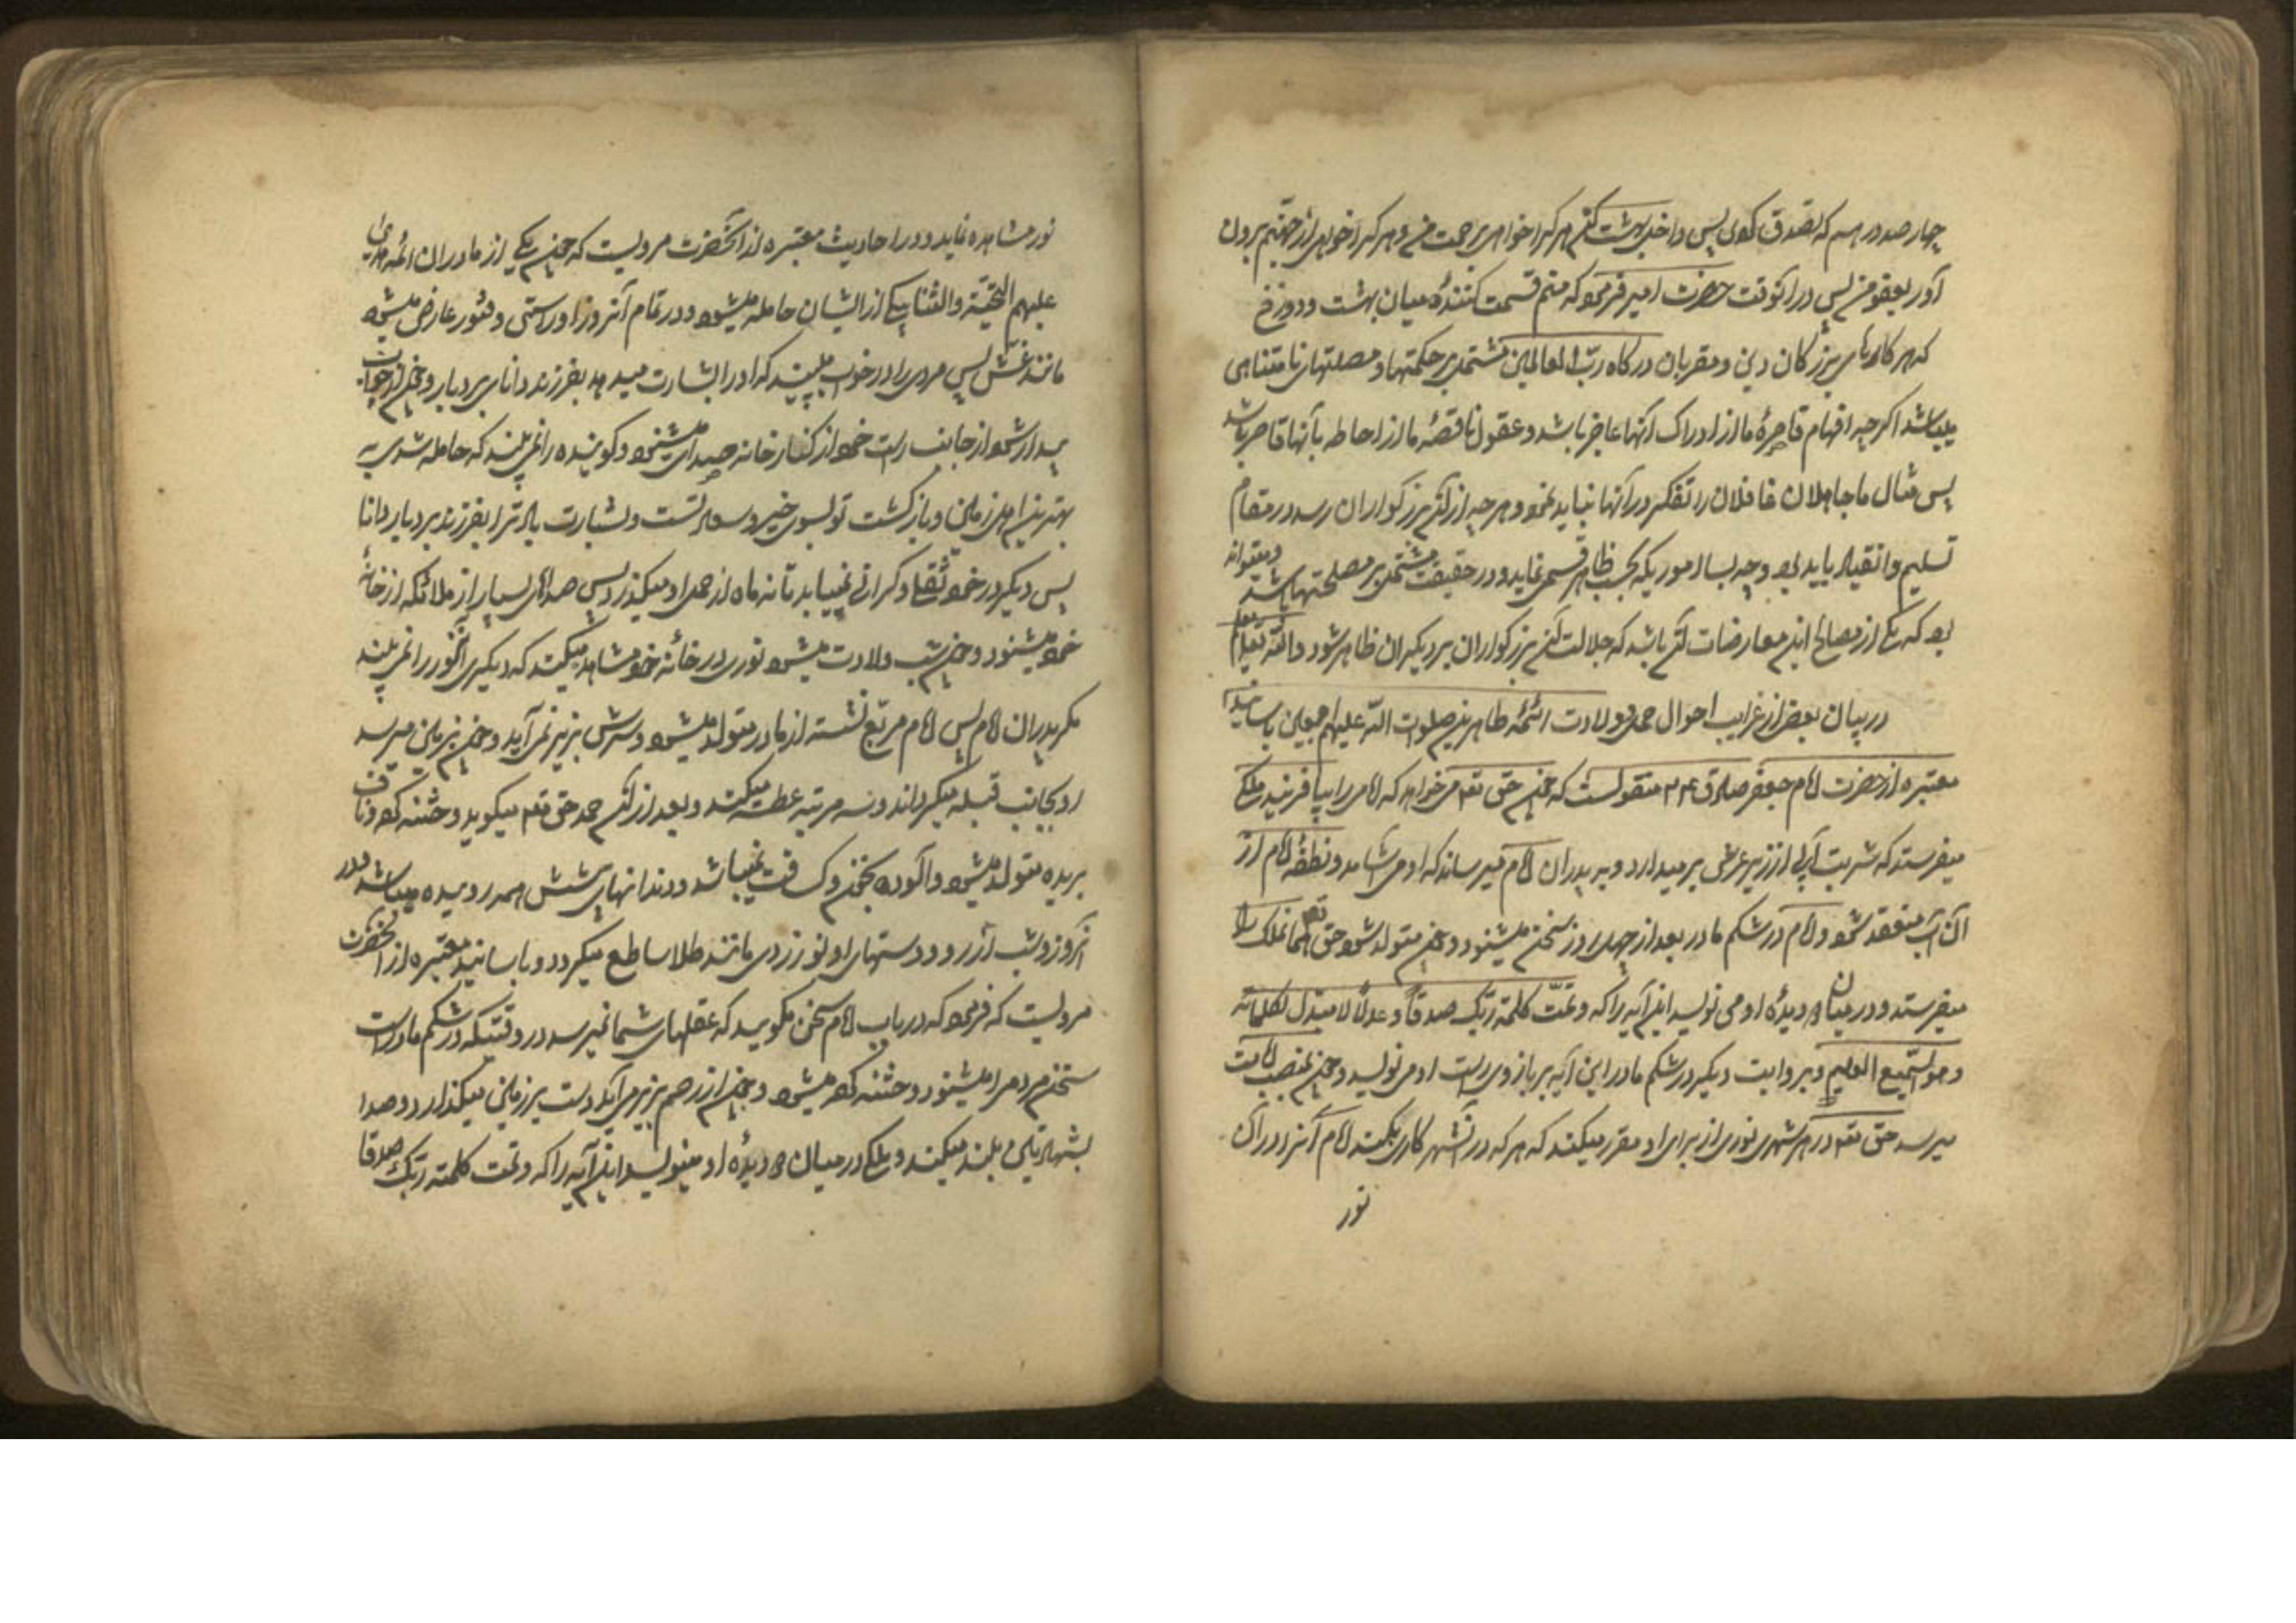 چهار صد درهم که تصدق کردی پس داخل بهشت کن هر که را خواهی برحمت من و هر که را خواهی از جهنم برون
آور بعفو من پس در آنوقت حضرت امیر فرمود که منم قسمت کننده میان بهشت و دوزخ
که هر کارهای بزرگان دین و مقربان درگاه رب العالمین مشتمل بر حکمتها و مصلحتهای نامتناهی
میباشد اگرچه افهام قاصرهٔ ما از ادراک آنها عاجز باشد و عقول ناقصهٔ ما از احاطه بآنها قاصر باشد
پس مثال ما جاهلان غافلان را تفکر در آنها نباید نمود و هرچه از آن بزرگواران رسد در مقام
تسلیم و انقیاد باید بود و چه بسا اموریکه بحسب ظاهر قسمی نماید و در حقیقت مشتمل بر مصلحتها باشد و میتواند
بود که یکی از مصالح این معارضات آن باشد که جلالت آن بزرگواران بر دیگران ظاهر شود والله تعالی یعلم
در بیان بعضی از غرایب احوال حمل و ولادت ائمهٔ طاهرین صلوات الله علیهم اجمعین باسانید
معتبره از حضرت امام جعفر صادق ع م منقولست که چون حق تعم میخواهد که امامی را بیافریند ملکی
میفرستد که شربت آبی از زیر عرش برمیدارد و به پدران امام میرساند که او می آشامد و نطفهٔ امام از
آن آب منعقد شود و امام در شکم مادر بعد از چهل روز سخن میشنود و چون متولد شود حق تعم همان ملک را
میفرستد و در میان دو دیدهٔ او می نویسد این آیه را که و تمت کلمة ربک صدقاً و عدلاً لا مبدل لکلماته
و هو السمیع العلیم و بروایت دیگر در شکم مادر این آیه بر بازوی راست او می نویسد و چون بمنصب امامت
میرسد حق تعم در هر شهری نوری از برای او مقرر میکند که هر که در آنشهر کاری بکند امام آنرا در آن
نور
نور مشاهده نماید و در احادیث معتبره از آنحضرت مرویست که چون یکی از مادران ائمه هدی
علیهم التحیة والثنا بیکی از ایشان حامله میشود و در تمام آنروز او را سستی و فتور عارض میشود
مانند غش پس مردی را در خواب میبیند که او را بشارت میدهد بفرزند دانای بردبار و چون از خواب
بیدار شود از جانب راست خود از کنار خانه صدای میشنود و گوینده را نمی بیند که حامله شدی به
بهترین اهل زمین و بازگشت تو بسوی خیر و سعادتست و بشارت باد ترا بفرزند بردبار دانا
پس دیگر در خود ثقلی و گرانی نمییابد تا نه ماه از حمل او میگذرد پس صدای بسیار از ملائکه از خانهٔ
خود میشنود و چون شب ولادت میشود نوری در خانهٔ خود مشاهده میکند که دیگری آن نور را نمی بیند
مگر پدران امام پس امام مربع نشسته از مادر متولد میشود و سرش بزیر نمی آید و چون بزمین میرسد
رو بجانب قبله میگرداند و سه مرتبه عطسه میکند و بعد از آن حمد حق تعم میگوید و ختنه کرده و ناف
بریده متولد میشود و آلوده بخون و کثافت نمیباشد و دندانهای پیشش همه روییده میباشد و در
آنروز و شب از رو و دستهای او نور زردی مانند طلا ساطع میگردد و باسانید معتبره از آنحضرت
مرویست که فرمود که در باب امام سخن مگویید که عقلهای شما نمیرسد در وقتیکه در شکم مادر است
سخن مردم را میشنود و ختنه کرده میشود و چون از رحم بزیر می آید دست بر زمین میگذارد و صدا
بشهادتین بلند میکند و ملکی در میان دو دیدهٔ او مینویسد این آیه را که و تمت کلمة ربک صدقا